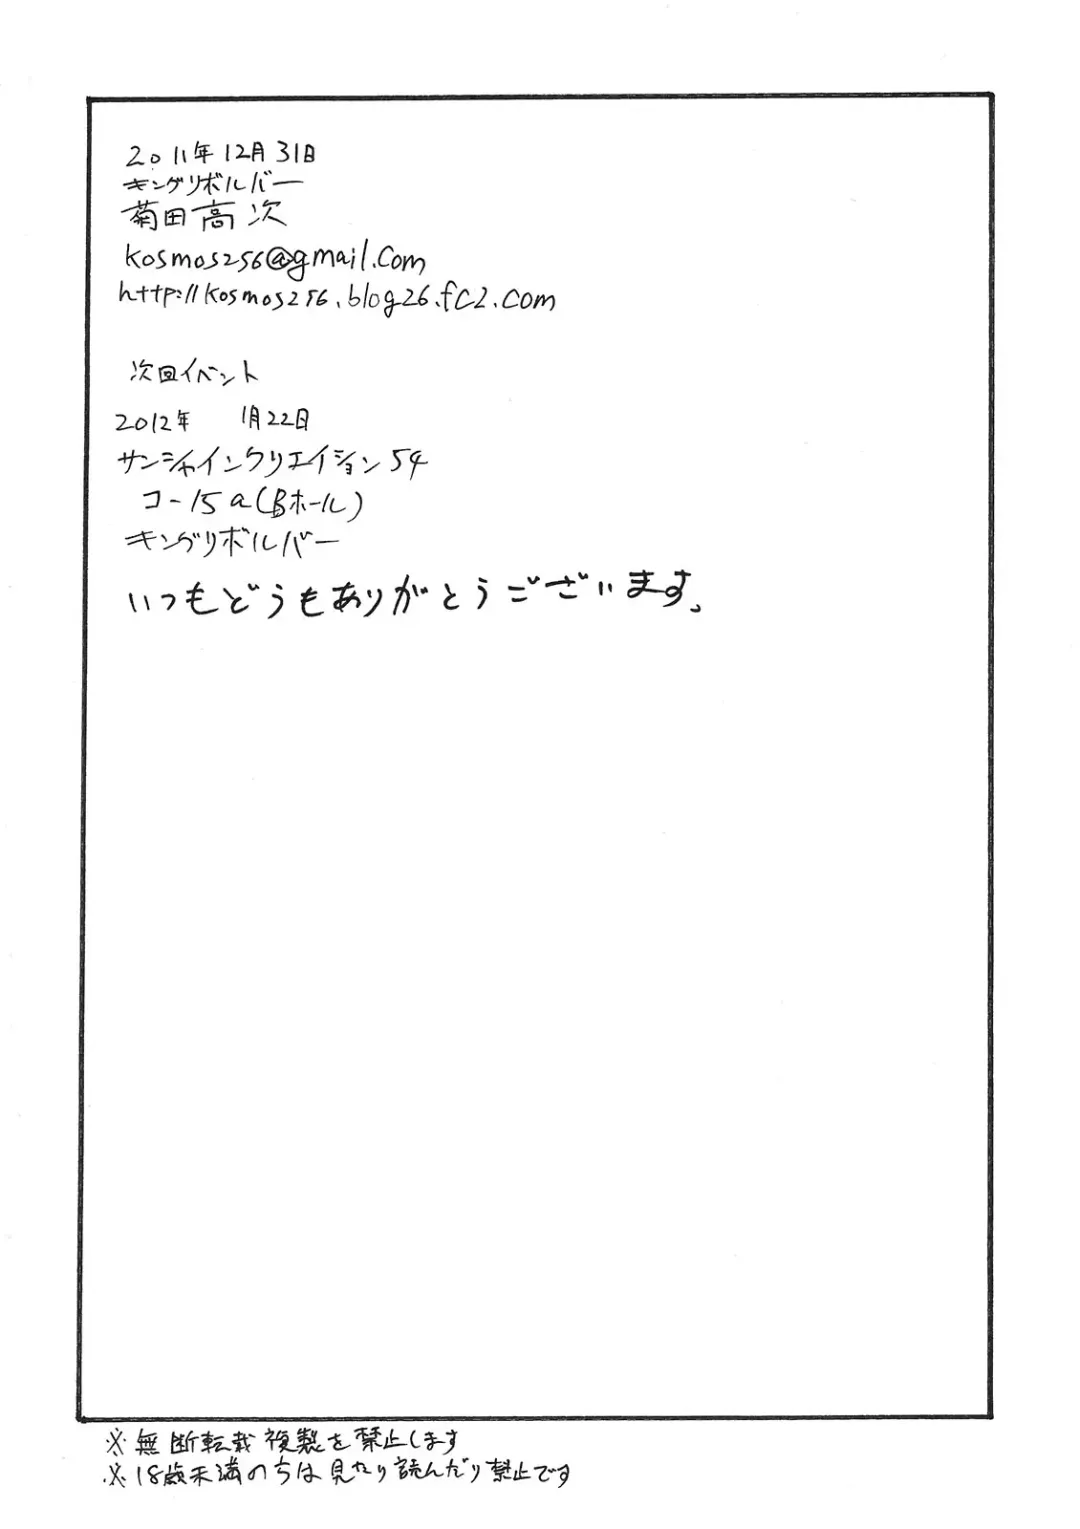 2011年12月31日
キングリボルバー
菊田高次
kosmos256@gmail.com
http://kosmos256.blog26.fc2.com
次回イベント
2012年 1月22日
サンシャインクリエイション54
コ-15a(Bホール)
キングリボルバー
いつもどうもありがとうございます。
※無断転載複製を禁止します
※18歳未満のちは見たり読んだり禁止です